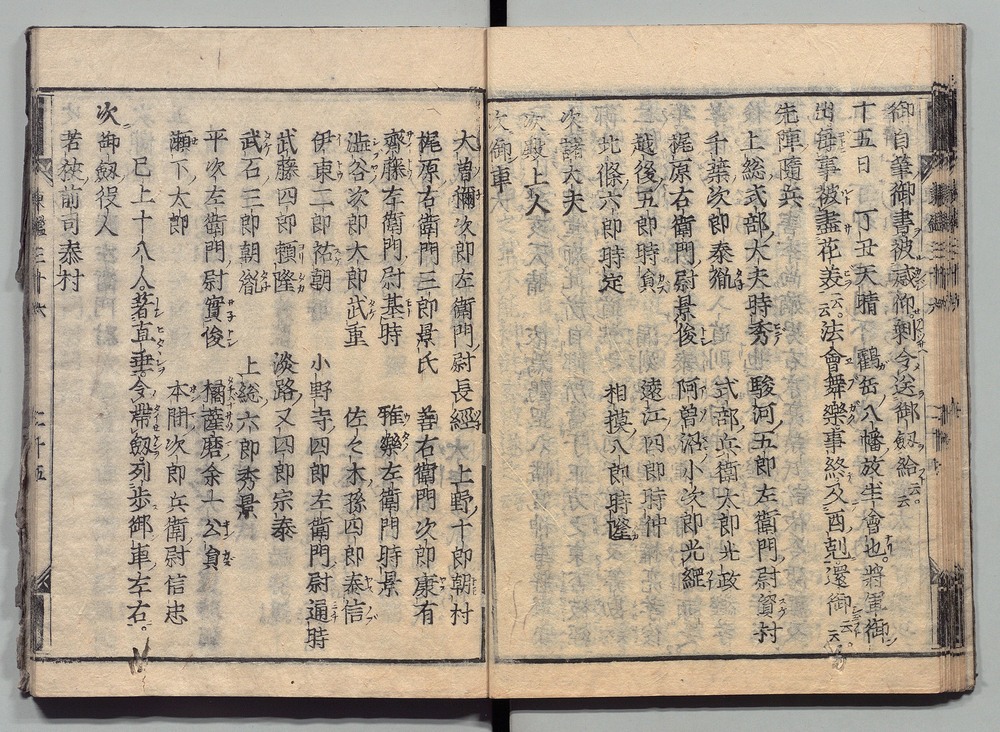 御自筆御書被感仰。剰令送御劔給云云
十五日 丁丑天晴 鶴岳八幡放生會也。將軍御
出毎事被盡花美云云。法會舞樂事終及酉剋還御云云。
先陣隨兵
上総式部大夫時秀 駿河五郎左衛門尉資村
千葉次郎泰胤 式部兵衛太郎光政
梶原右衛門尉景俊 阿曾沼小次郎光綱
越後五郎時員 遠江四郎時仲
北條六郎時定 相摸八郎時隆
次諸大夫
次殿上人
次御車
大曾禰次郎左衛門尉長經 大上野十郎朝村
梶原右衛門三郎景氏 善右衛門次郎康有
齋藤左衛門尉基時 雅樂左衛門時景
澁谷次郎太郎武重 佐々木孫四郎泰信
伊東二郎祐朝 小野寺四郎左衛門尉通時
武藤四郎頼隆 淡路又四郎宗泰
武石三郎朝胤 上総六郎秀景
平次左衛門尉實俊 橘薩摩余一公員
瀬下太郎 本間次郎兵衛尉信忠
已上十八人。著直垂。令帶劔。列歩御車左右。
次御劔役人
若狹前司泰村
東鑑三十六
二十五